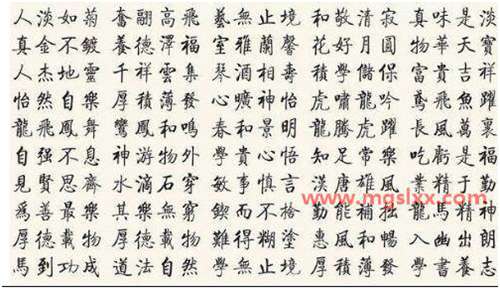 人淡如菊 奮翮高飛 藝無止境 和敬清寂 真味是淡
真金不鍍 養德澤福 室雅蘭馨 花好月圓 物華天寶
人杰地靈 千祥雲集 琴 相壽 學儲 富貴吉祥
怡然自樂 厚積薄發 曠神怡 虎嘯龍吟 鳶飛魚躍
龍飛鳳舞 鸞鳳和鳴 春和景明 龍騰虎躍 長風萬里
自强不息 神游物外 學貴心悟 知足常樂 吃虧是福
見賢思齊 水滴石穿 敏事慎言 漢唐雄風 業精于勤
爲善最樂 其樂無窮 鍥而不捨 勤能補拙 龍馬精神
厚德載物 厚德載物 難得糊塗 惠風和暢 幽出朗
馬到功成 道法自然 學無止境 厚積薄發 學書養
www.mgslxx.com